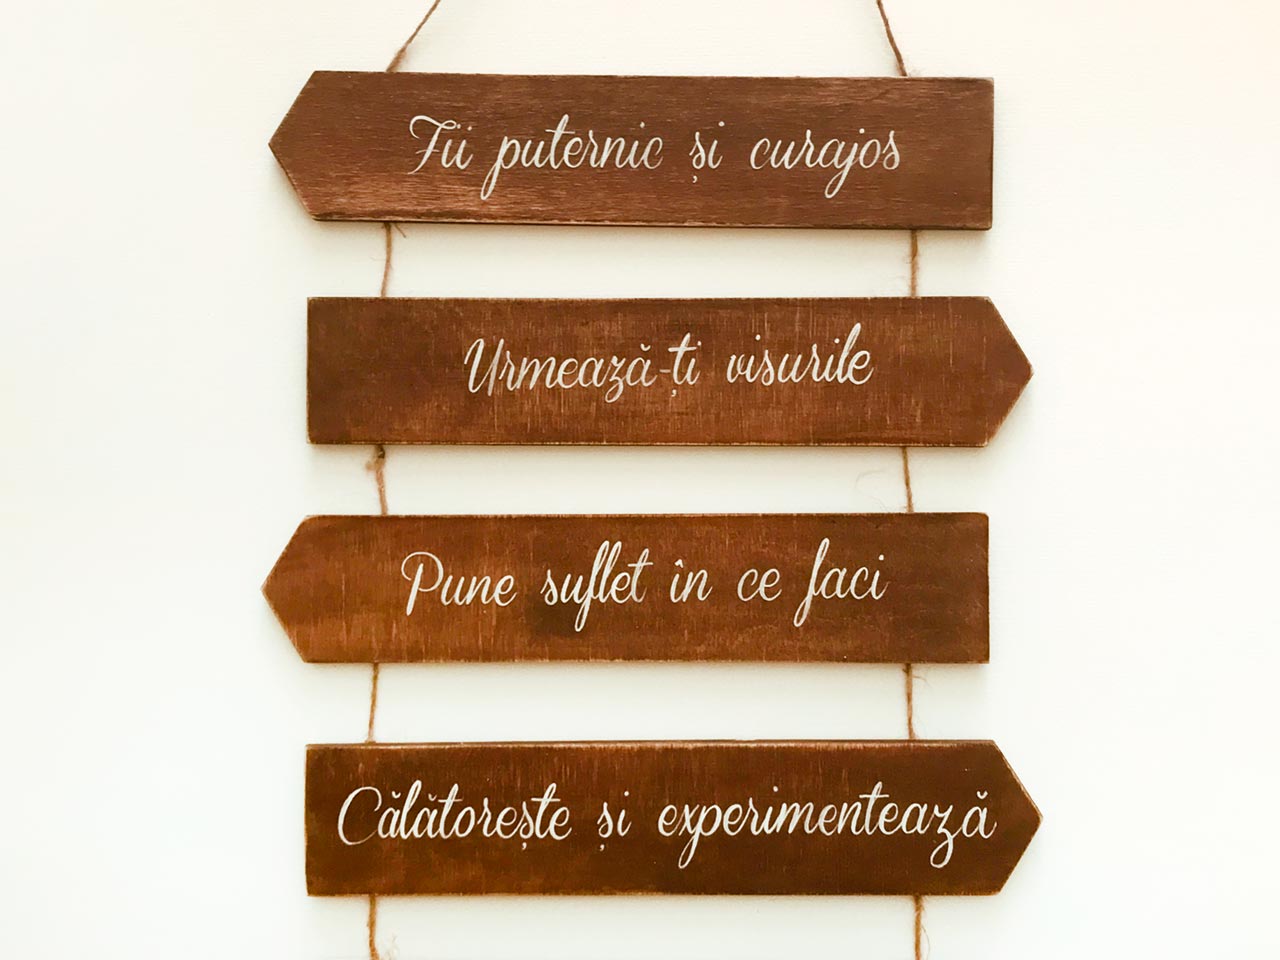 Fii puternic și curajos
Urmează-ți visurile
Pune suflet în ce faci
Călătorește și experimentează